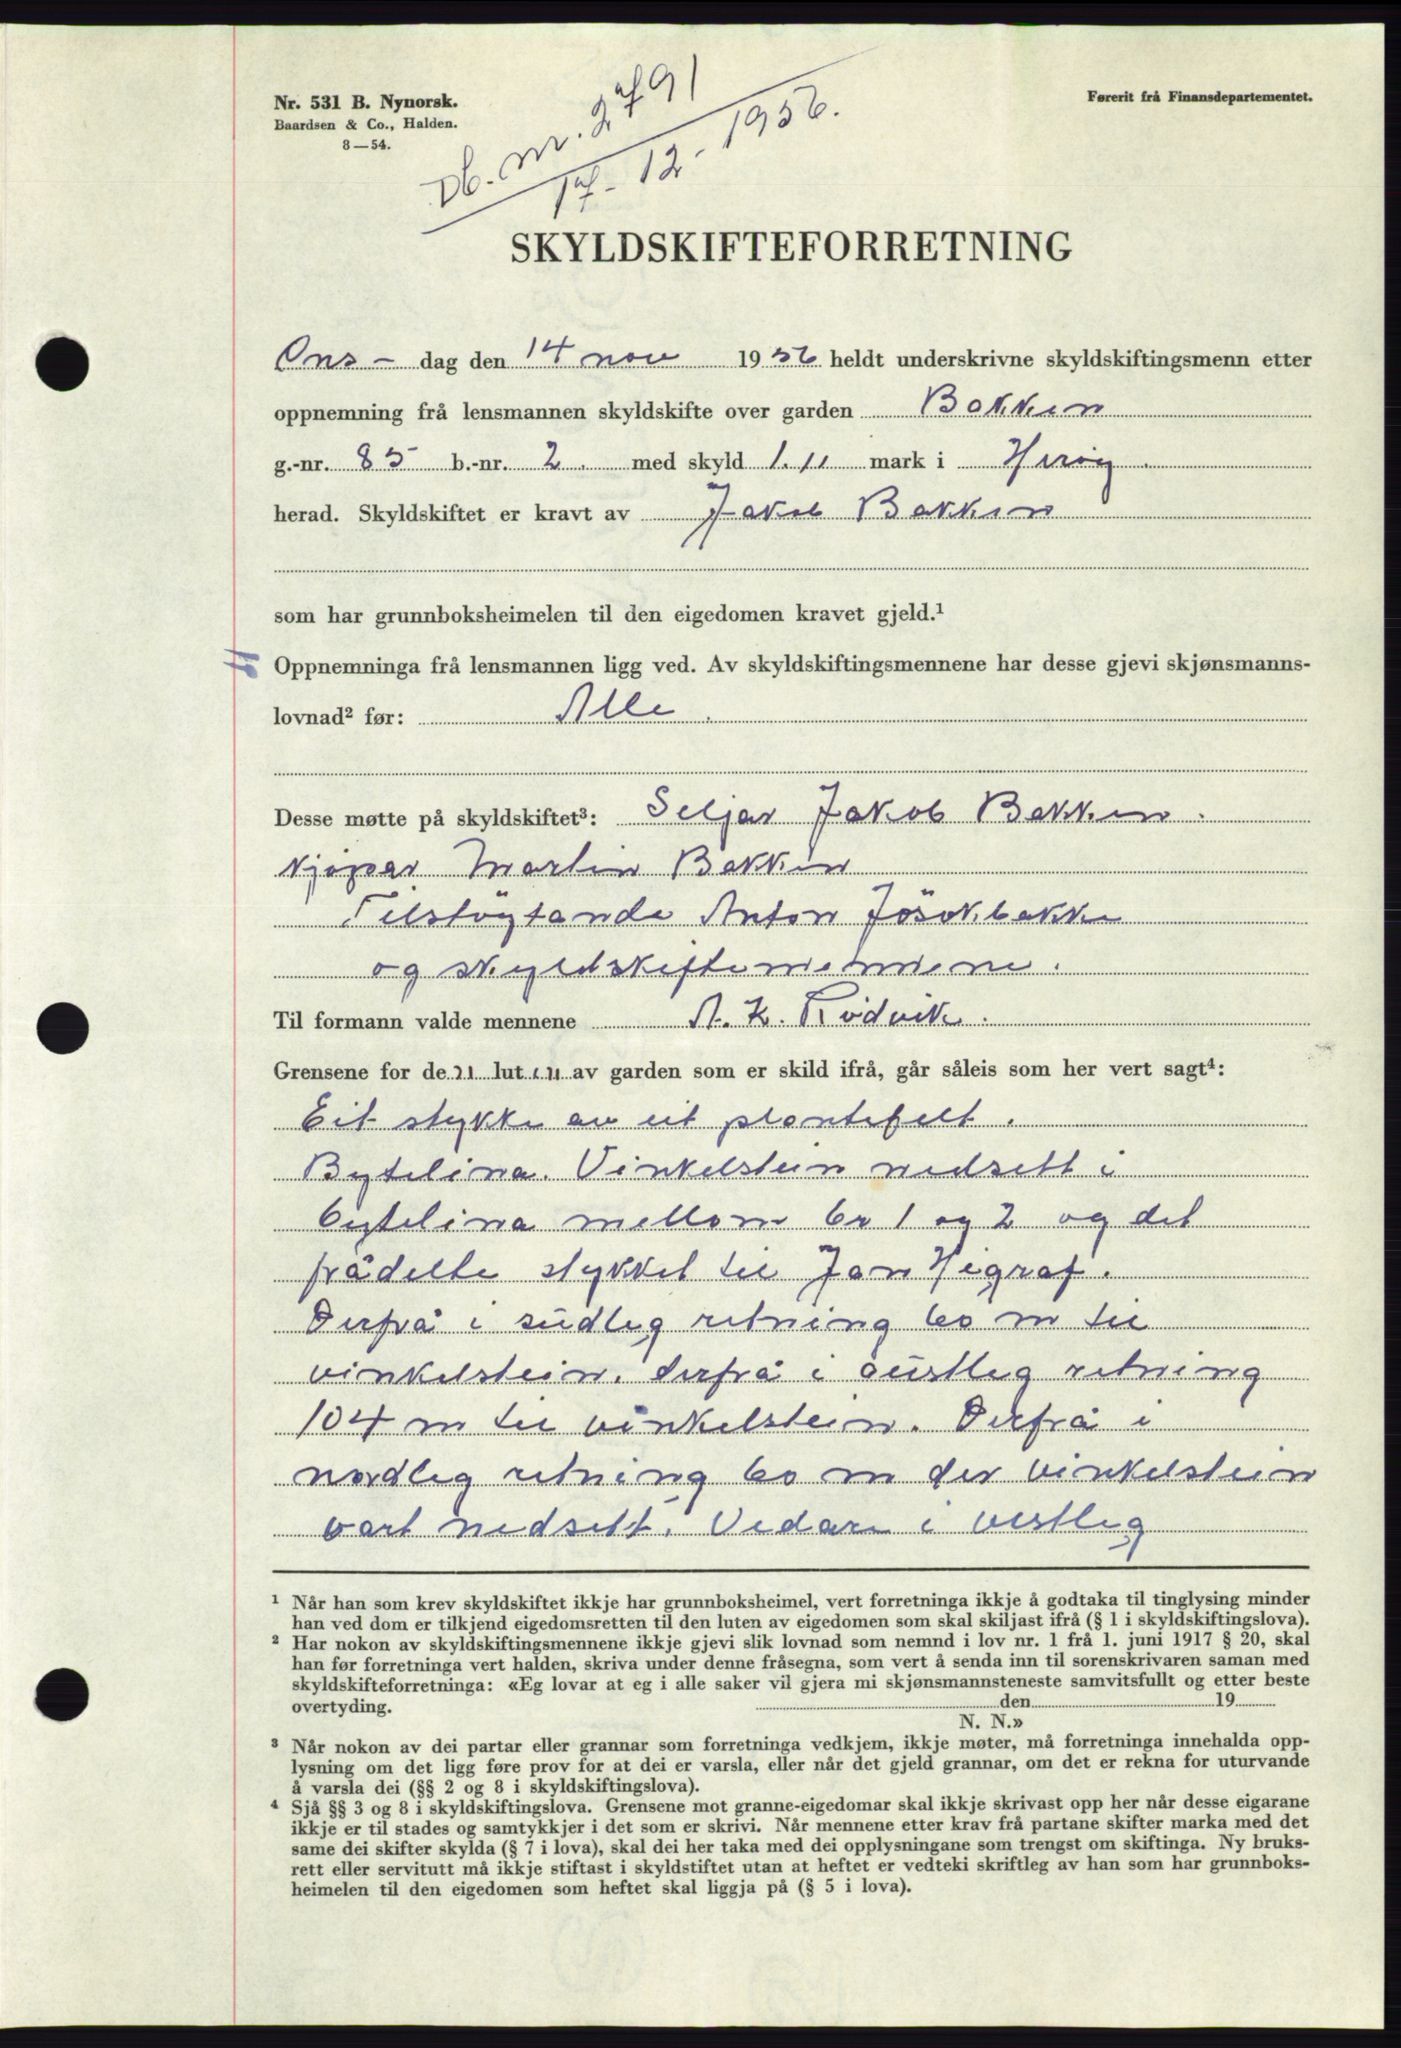 Nr. 531 B. Nynorsk.
Baardsen & Co., Halden.
8—54.
Førerit frå Finansdepartementet.
Db. nr. 2791
17-12-1956.
SKYLDSKIFTEFORRETNING
Ons- dag den 14 nov 1956 heldt underskrivne skyldskiftingsmenn etter
oppnemning frå lensmannen skyldskifte over garden Bakken
g.-nr. 85 b.-nr. 2. med skyld 1.11 mark i Herøy.
herad. Skyldskiftet er kravt av Jakob Bakken
som har grunnboksheimelen til den eigedomen kravet gjeld.¹
Oppnemninga frå lensmannen ligg ved. Av skyldskiftingsmennene har desse gjevi skjønsmanns-
lovnad² før: Alle.
Desse møtte på skyldskiftet³: Seljar Jakob Bakken.
kjøpar Martin Bakken
Tilstøytande Anton Jøsokbakke
og skyldskiftemennene.
Til formann valde mennene A. K. Rødvik.
Grensene for den luten av garden som er skild ifrå, går såleis som her vert sagt⁴:
Eit stykke av eit plantefelt.
Bytelina. Vinkelstein nedsett i
bytelina mellom br 1 og 2 og det
frådelte stykket til Jan Hegraf.
Derfrå i sudleg retning 60 m til
vinkelstein. derfrå i austleg retning
104 m til vinkelstein. Derfrå i
nordleg retning 60 m der vinkelstein
vart nedsett. Vidare i vestleg
¹ Når han som krev skyldskiftet ikkje har grunnboksheimel, vert forretninga ikkje å godtaka til tinglysing minder
han ved dom er tilkjend eigedomsretten til den luten av eigedomen som skal skiljast ifrå (§ 1 i skyldskiftingslova).
² Har nokon av skyldskiftingsmennene ikkje gjevi slik lovnad som nemnd i lov nr. 1 frå 1. juni 1917 § 20, skal
han før forretninga vert halden, skriva under denne fråsegna, som vert å senda inn til sorenskrivaren saman med
skyldskifteforretninga: «Eg lovar at eg i alle saker vil gjera mi skjønsmannsteneste samvitsfullt og etter beste
overtyding. den 19
N. N.»
³ Når nokon av dei partar eller grannar som forretninga vedkjem, ikkje møter, må forretninga innehalda opp-
lysning om det ligg føre prov for at dei er varsla, eller når det gjeld grannar, om det er rekna for uturvande
å varsla dei (§§ 2 og 8 i skyldskiftingslova).
⁴ Sjå §§ 3 og 8 i skyldskiftingslova. Grensene mot granne-eigedomar skal ikkje skrivast opp her når desse eigarane
ikkje er til stades og samtykkjer i det som er skrivi. Når mennene etter krav frå partane skifter marka med det
same dei skifter skylda (§ 7 i lova), skal dei her taka med dei opplysningane som trengst om skiftinga. Ny bruks-
rett eller servitutt må ikkje stiftast i skyldstiftet utan at heftet er vedteki skriftleg av han som har grunnboks-
heimelen til den eigedomen som heftet skal liggja på (§ 5 i lova).